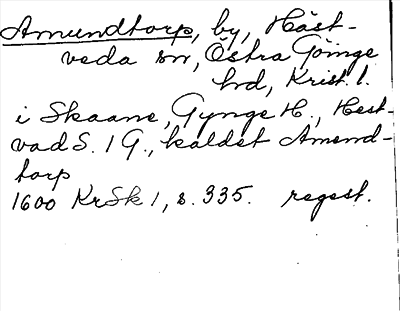 Amundtorp, by, Häst-
veda sn, Östra Göinge
hrd, Krist. l.
i Skaane, Gynge H., Hest-
vad S. 1 G., kaldet Amend-
torp
1600 KrSk 1, s. 335. regest.